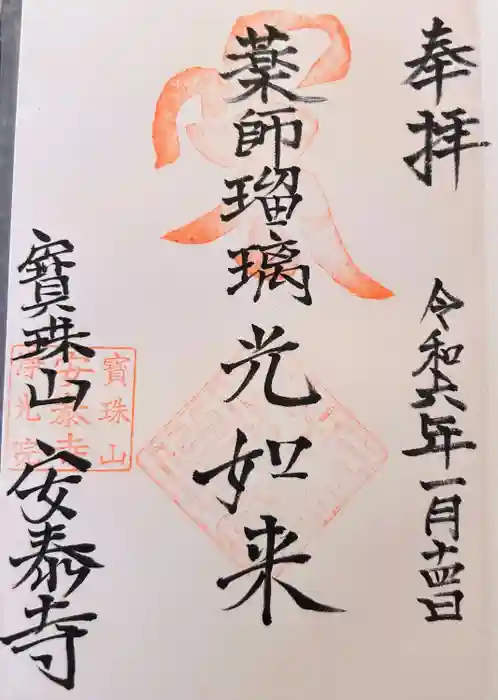 奉拝
令和六年一月十四日
薬師瑠璃光如来
寳珠山安泰寺
寳珠山
安泰寺